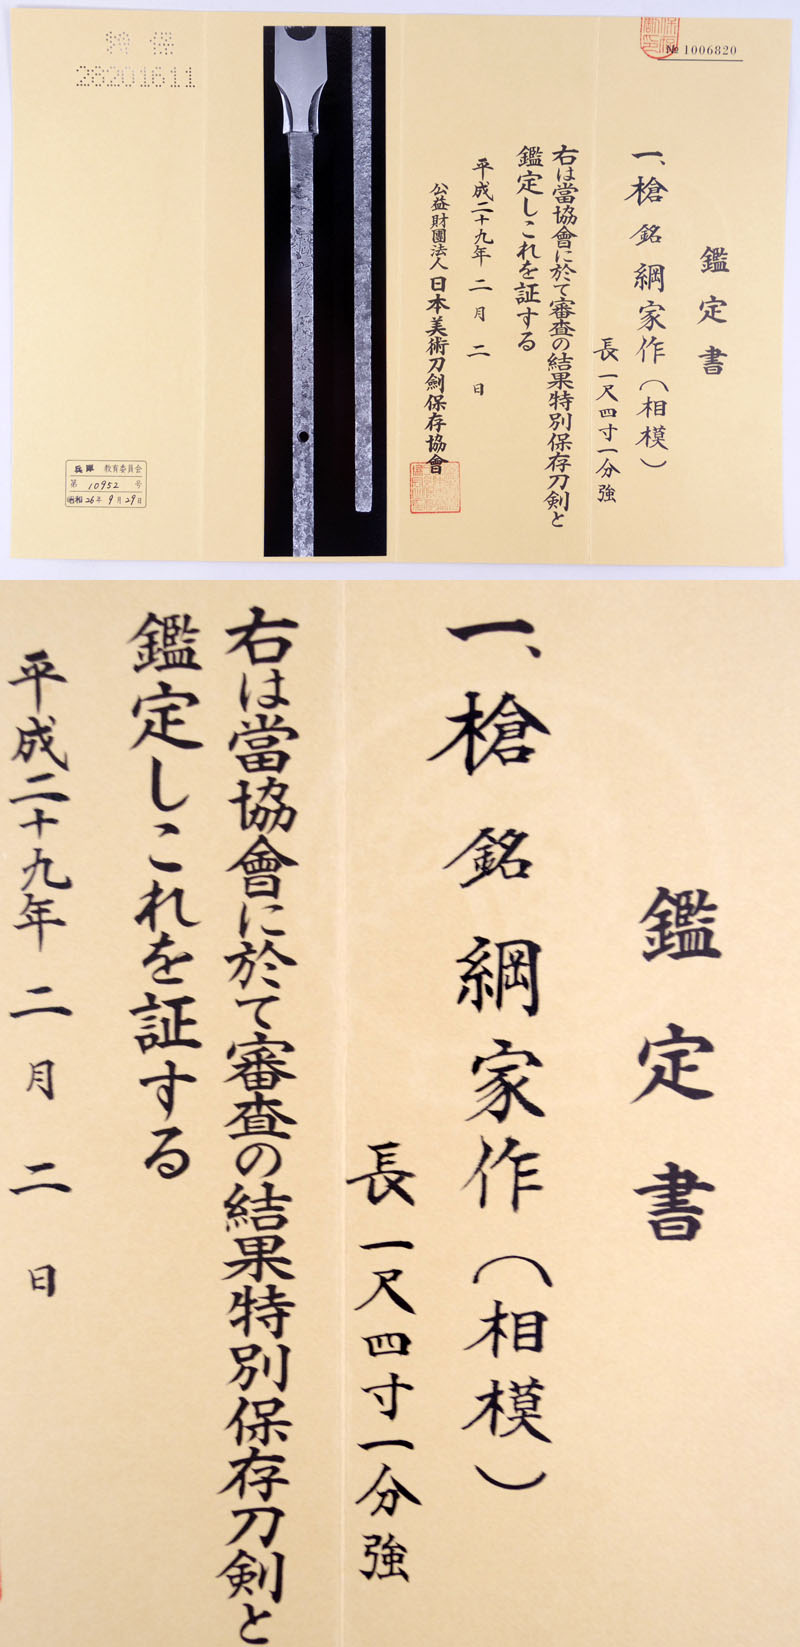 № 1006820
鑑定書
一、槍 銘 綱家作（相模）
長 一尺四寸一分強
右は當協會に於て審査の結果特別保存刀剣と
鑑定しこれを証する
平成二十九年 二月 二日
公益財團法人 日本美術刀劍保存協會
特保
28201611
兵庫 教育委員会
第 10952 号
昭和 26年 9月 29日
鑑定書
一、槍 銘 綱家作（相模）
長 一尺四寸一分強
右は當協會に於て審査の結果特別保存刀剣と
鑑定しこれを証する
平成二十九年 二月 二日